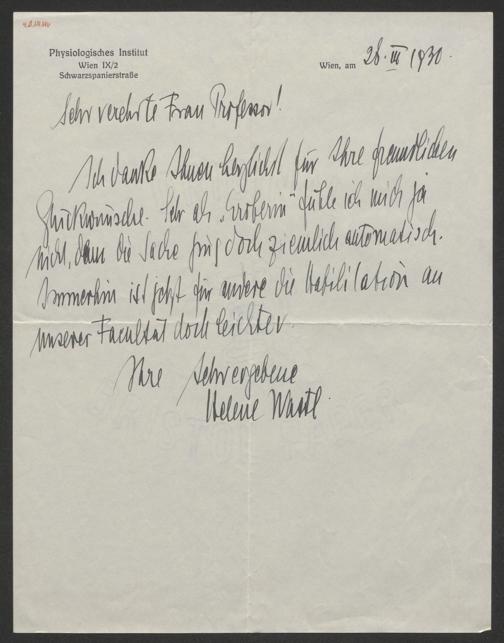 Physiologisches Institut
Wien IX/2
Schwarzspanierstraße
Wien, am 28. III 1930.
Sehr verehrte Frau Professor!
Ich danke Ihnen herzlichst für Ihre freundlichen
Glückwünsche. Sehr als „Eroberin" fühle ich mich ja
nicht, denn die Sache ging doch ziemlich automatisch.
Immerhin ist jetzt für andere die Habilitation an
unserer Facultät doch leichter.
Ihre sehr ergebene
Helene Wastl.